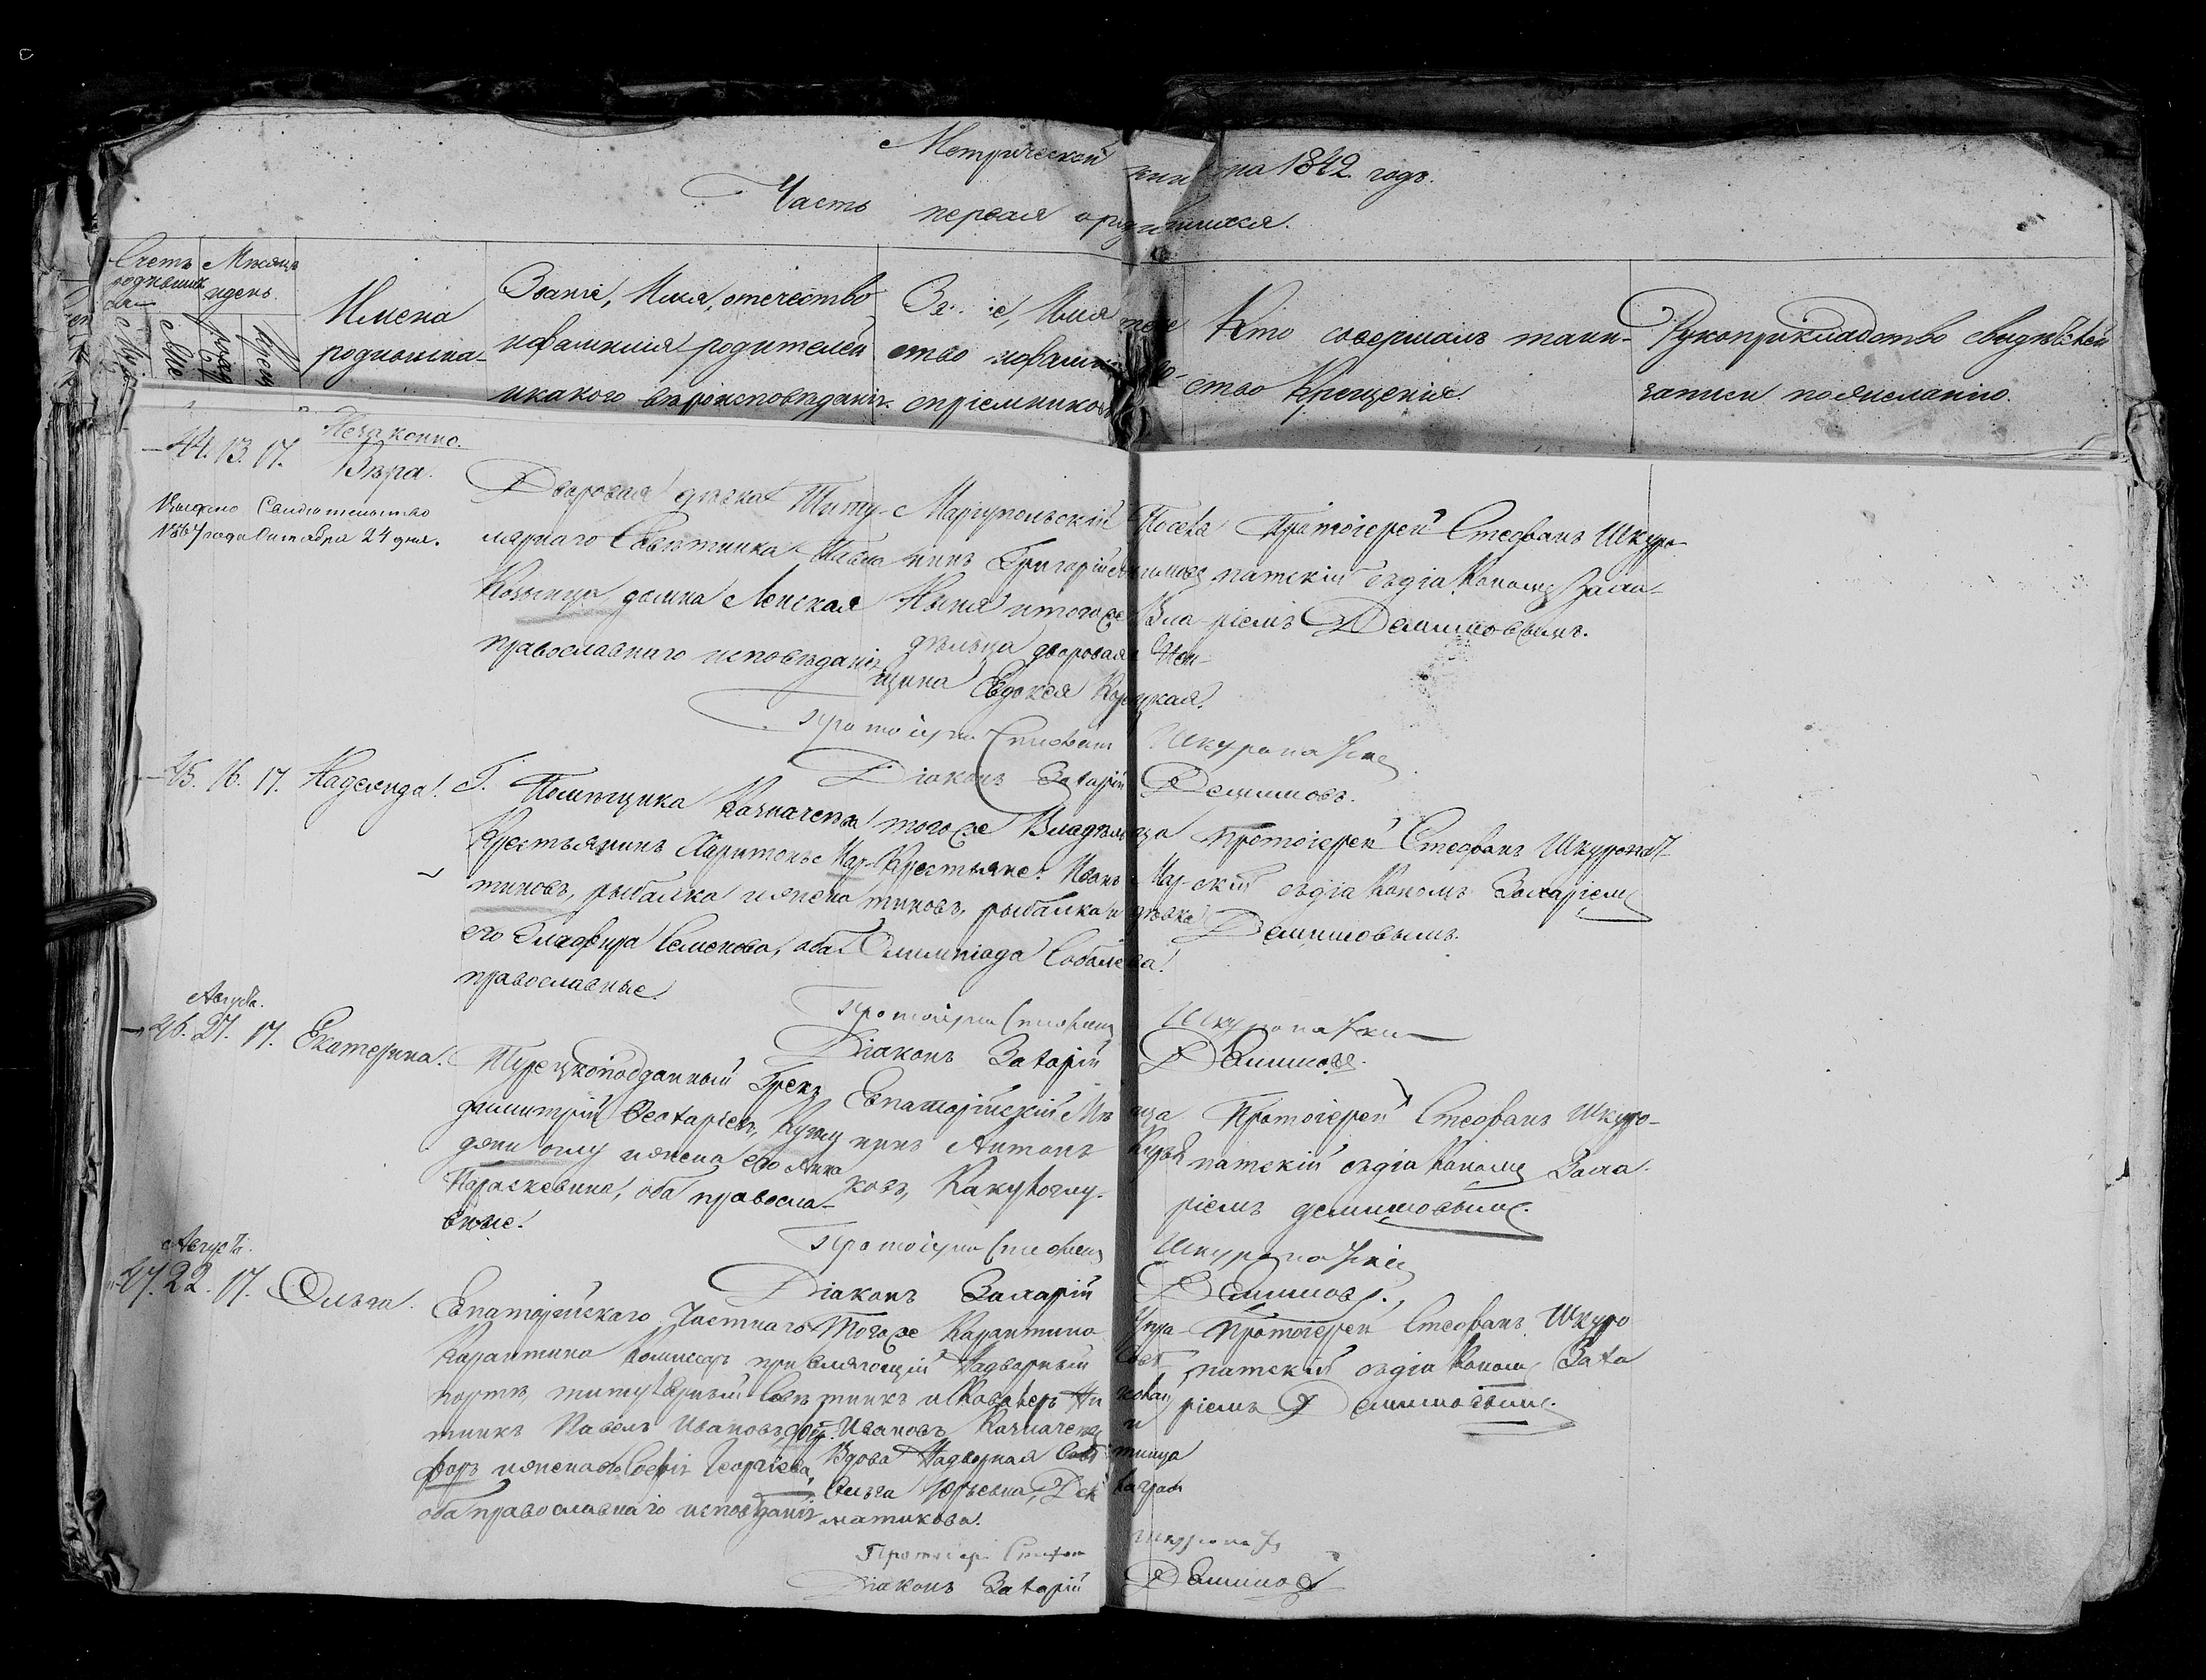 Метрической книги на 1842 годъ.
Часть первая о родившихся.
Счетъ родившихся
Мѣсяцъ и день
Имена родившихся
Званіе, Имя, отечество и фамилія родителей и какого вѣроисповѣданія
Званіе, Имя, отечество и фамилія воспріемниковъ
Кто совершалъ таинство Крещенія
Рукоприкладство свидѣтелей записи по желанію.
44. 13. 17.
Незаконно.
Вѣра.
Выдано Свидѣтельство
1867 года Октября 24 дня.
Дворовая дѣвка Титу-
лярнаго Совѣтника Павла
Казынца Домна Ленская
православнаго исповѣданія
Маріупольскій Посела-
нинъ Григорій
Кыня и того же Вла-
дѣльца дворовая Жен-
щина Евдокія
Протоіерей Стефанъ Шкуро-
патскій съ діакономъ Заха-
ріемъ Демишовымъ.
Протоіерей Стефанъ Шкуропатскій
Діаконъ Захарій Демишовъ.
45. 16. 17. Надежда.
Г. Помѣщика Казначеева
Крестьянинъ Харитонъ Мар-
тиновъ, рыбалка и жена
его Гликерія Семенова, оба
православные.
того же Владѣльца
Крестьяне: Иванъ Мар-
тиновъ, рыбалка и дѣвка
Олимпіада Соболева.
Протоіерей Стефанъ Шкуропат-
скій съ діакономъ Захаріемъ
Демишовымъ.
Протоіерей Стефанъ Шкуропатскій
Діаконъ Захарій Демишовъ.
Августа.
46. 27. 17. Екатерина.
Турецкоподданный Грекъ
Димитрій
и жена его Анна
Параскевина, оба правосла-
вные.
Евпаторійскій Мѣща
нинъ Антонъ
Протоіерей Стефанъ Шкуро-
патскій съ діакономъ Заха-
ріемъ Демишовымъ.
Протоіерей Стефанъ Шкуропатскій
Діаконъ Захарій Демишовъ.
Августа.
47. 22. 17. Ольга.
Евпаторійскаго Частнаго
Карантина Комисаръ при
портѣ, титулярный Совѣ
тникъ Павелъ Ивановъ,
и жена его Софія Георгіева,
оба православнаго исповѣданія
Того же Карантина Упра-
вляющій Надворный Совѣ
тникъ и Кавалеръ Николай
Ивановъ Казначеевъ и
Вдова Надворная Совѣтница
Ольга Юрьевна,
Протоіерей Стефанъ Шкуро
патскій съ діакономъ Заха
ріемъ Демишовымъ.
Протоіерей Стефанъ Шкуропат
Діаконъ Захарій Демишовъ